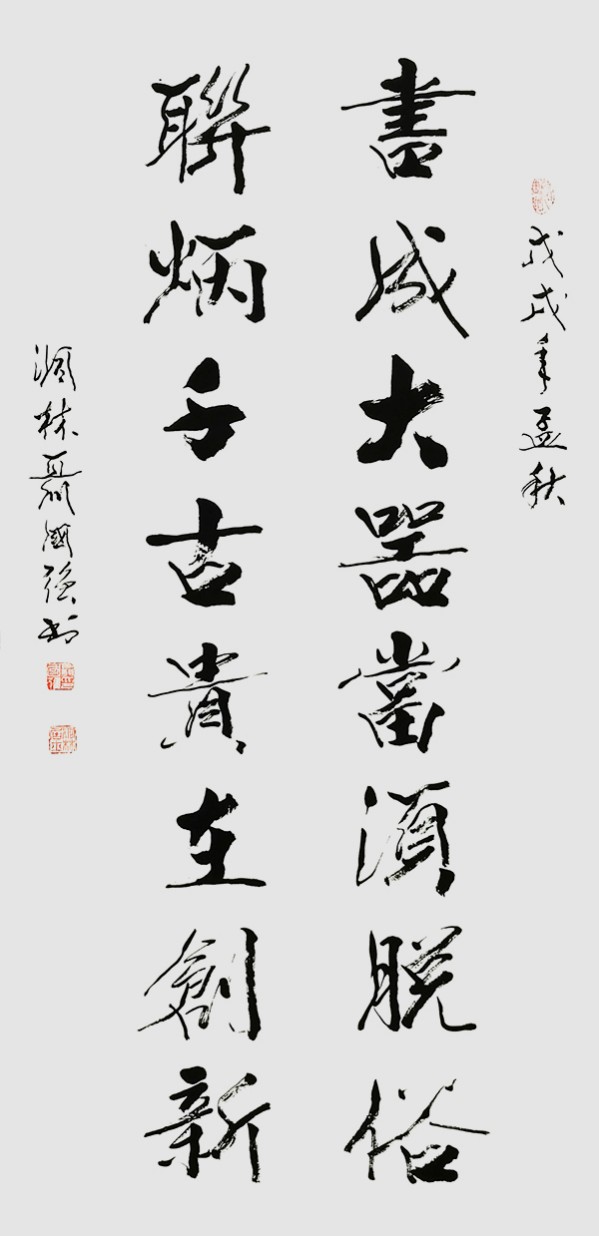 戊戌年孟秋
書成大器當須脫俗
聯炳千古貴在創新
聶國強书